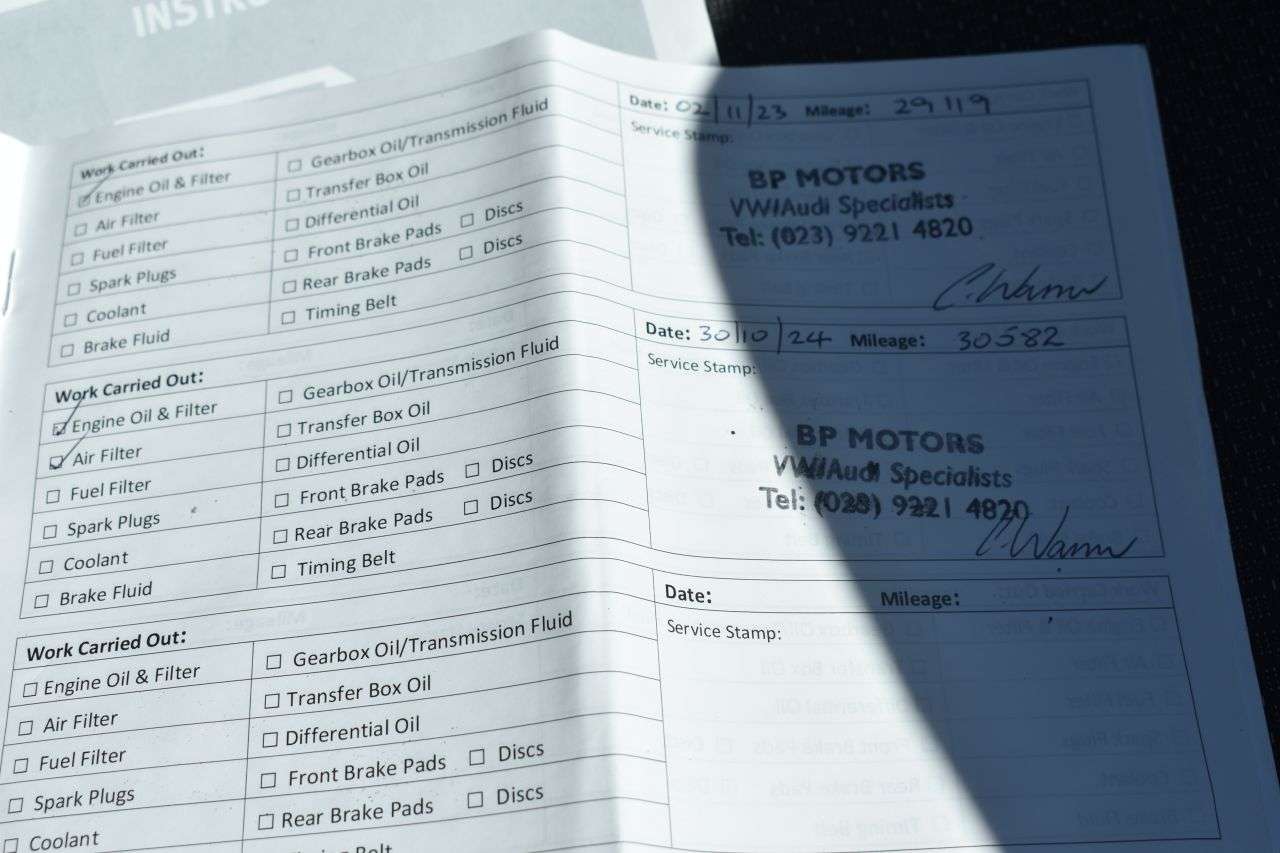 INSTRU
Work Carried Out:
☑ Engine Oil & Filter
☐ Air Filter
☐ Fuel Filter
☐ Spark Plugs
☐ Coolant
☐ Brake Fluid
☐ Gearbox Oil/Transmission Fluid
☐ Transfer Box Oil
☐ Differential Oil
☐ Front Brake Pads ☐ Discs
☐ Rear Brake Pads ☐ Discs
☐ Timing Belt
Date: 02/11/23 Mileage: 29119
Service Stamp:
BP MOTORS
VW/Audi Specialists
Tel: (023) 9221 4820
Work Carried Out:
☑ Engine Oil & Filter
☑ Air Filter
☐ Fuel Filter
☐ Spark Plugs
☐ Coolant
☐ Brake Fluid
☐ Gearbox Oil/Transmission Fluid
☐ Transfer Box Oil
☐ Differential Oil
☐ Front Brake Pads ☐ Discs
☐ Rear Brake Pads ☐ Discs
☐ Timing Belt
Date: 30/10/24 Mileage: 30582
Service Stamp:
BP MOTORS
VW/Audi Specialists
Tel: (023) 9221 4820
Work Carried Out:
☐ Engine Oil & Filter
☐ Air Filter
☐ Fuel Filter
☐ Spark Plugs
☐ Coolant
☐ Gearbox Oil/Transmission Fluid
☐ Transfer Box Oil
☐ Differential Oil
☐ Front Brake Pads ☐ Discs
☐ Rear Brake Pads ☐ Discs
Timing Belt
Date: Mileage:
Service Stamp: